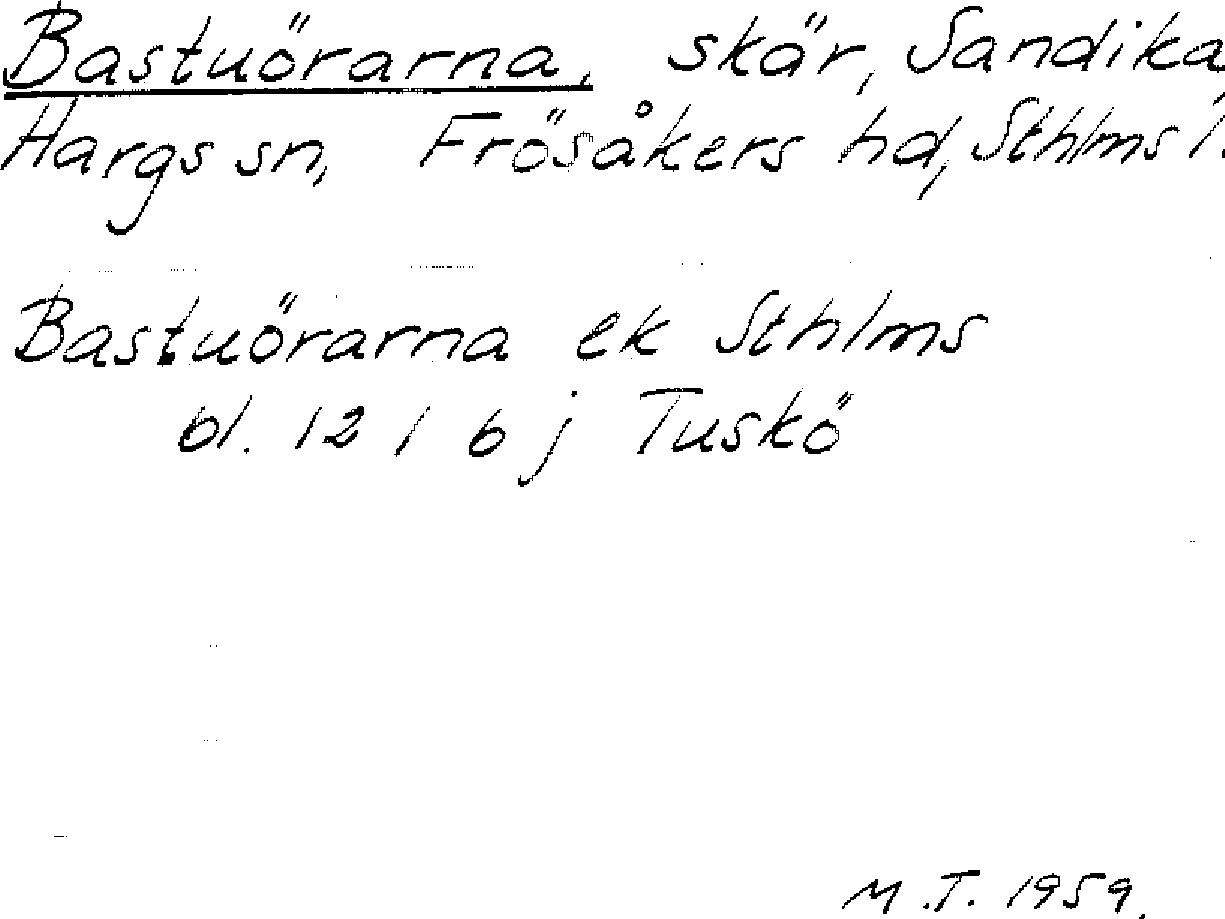 Bastuörarna, skär, Sandika
Hargs sn, Frösåkers hd, Sthlms l.
Bastuörarna ek Sthlms
bl. 12 I 6 j Tuskö
M.T. 1959.